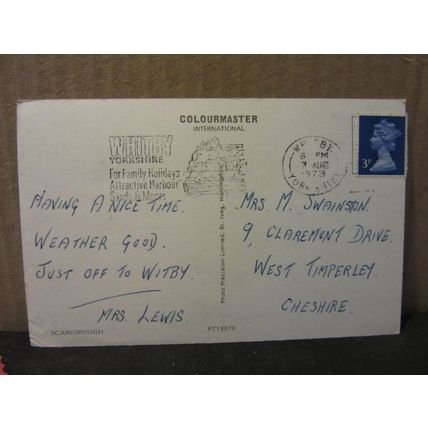 COLOURMASTER
INTERNATIONAL
WHITBY
YORKSHIRE
For Family Holidays
Attractive Harbour
Sands & Moors
WHITBY
6 PM
7 AUG
1973
YORKSHIRE
3P
HAVING A NICE TIME.
WEATHER GOOD.
JUST OFF TO WITBY.
MRS. LEWIS.
SCARBOROUGH
Photo Precision Limited, St. Ives, Huntingdon
PT19970
MRS. M. SWAINSTON.
9, CLAREMONT DRIVE.
WEST TIMPERLEY.
CHESHIRE.